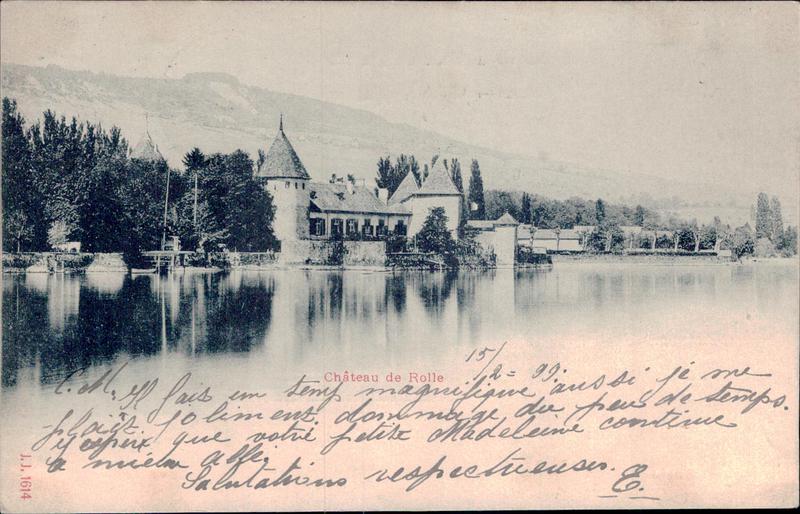 Château de Rolle
15/2 = 99.
C. M. Il fais un temp magnifique aussi je me
plait joliment. dommage du peu de temps.
J'espeix que votre petite Madeleine continue
a mieux allé.
Salutations respectueuses.
E.
J.J. 1614